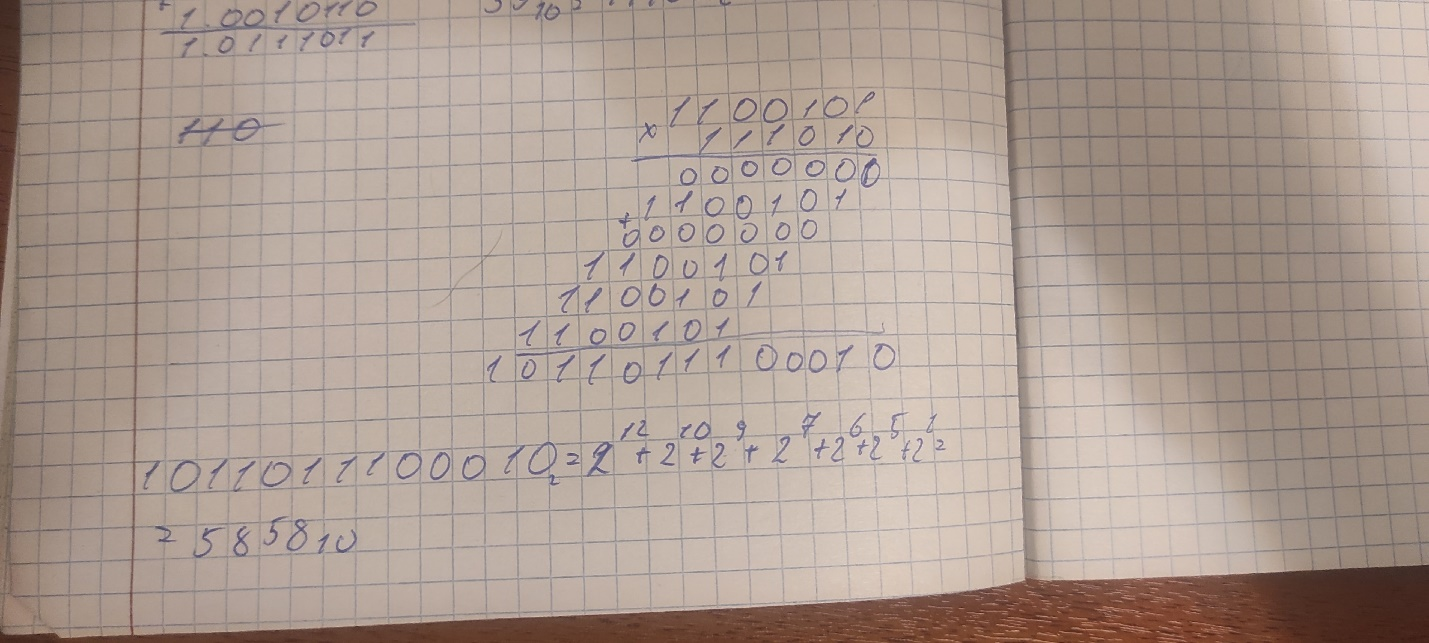 +
1.0010110
1.01111011
110
1100101
x 111010
0000000
+1100101
0000000
1100101
1100101
1100101
1011011100010
1011011100010₂=2¹²+2¹⁰+2⁹+2⁷+2⁶+2⁵+2¹=
=5858₁₀